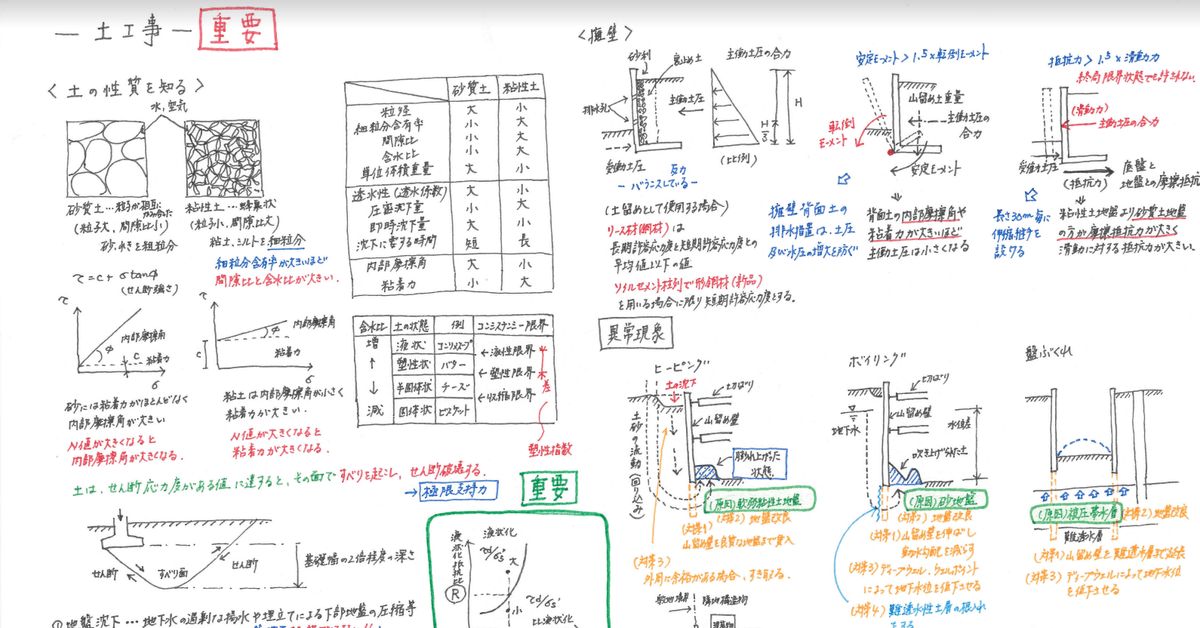 ― 土工事 ―
重要
＜土の性質を知る＞
水,空気
砂質土…粒子が相互に
かみ合った
(粒子大、間隙比小)
砂、れきを粗粒分
粘性土…蜂巣状
(粒子小、間隙比大)
粘土、シルトを細粒分
細粒分含有率が大きいほど
間隙比と含水比が大きい.
τ=c+σtanφ
(せん断強さ)
τ
内部摩擦角
φ
c
粘着力
σ
τ
内部摩擦角
φ
c
粘着力
σ
砂には粘着力がほとんどなく
内部摩擦角が大きい
N値が大きくなると
内部摩擦角が大きくなる.
粘土は内部摩擦角が小さく
粘着力が大きい.
N値が大きくなると
粘着力が大きくなる.
土は、せん断応力度がある値に達すると、その面ですべりを起こし、せん断破壊する.
→極限支持力
せん断
すべり面
せん断
基礎幅の2倍程度の深さ
①地盤沈下…地下水の過剰な揚水や埋立てによる下部地盤の圧縮等
砂質土 粘性土
粒径 大 小
細粒分含有率 小 大
間隙比 小 大
含水比 小 大
単位体積重量 大 小
透水性(透水係数) 大 小
圧密沈下量 小 大
即時沈下量 大 小
沈下に要する時間 短 長
内部摩擦角 大 小
粘着力 小 大
含水比 土の状態 例 コンシステンシー限界
増 液状 コーンスープ
←液性限界
↑ 塑性状 バター
←塑性限界
↓ 半固体状 チーズ
←収縮限界
減 固体状 ビスケット
差
塑性指数
重要
液状化抵抗比
R
液状化
τd/σs'
大
小
τd/σs'
非液状化
＜擁壁＞
砂利
裏込め土
主働土圧の合力
排水孔
主働土圧
H
H/3
(比例)
受働土圧
反力
―バランスしている―
(土留めとして使用する場合)
リース材(鋼材)は
長期許容応力度と短期許容応力度との
平均値以下の値
ソイルセメント柱列で形鋼材(新品)
を用いる場合に限り短期許容応力度とする.
安定モーメント>1.5×転倒モーメント
山留め土重量
主働土圧の
合力
転倒
モーメント
安定モーメント
擁壁背面土の
排水措置は、土圧
及び水圧の増大を防ぐ
背面土の内部摩擦角や
粘着力が大きいほど
主働土圧は小さくなる
抵抗力>1.5×滑動力
(滑動力)
主働土圧の合力
受働土圧
(抵抗力)
底盤と
地盤との摩擦抵抗
長さ30m毎に
伸縮継手を
設ける
粘性土地盤より砂質土地盤
の方が摩擦抵抗力が大きく
滑動に対する抵抗力が大きい.
異常現象
ヒービング
土の沈下
切ばり
山留め壁
土砂の流動(回り込み)
膨れ上がった
状態
(原因)軟弱粘性土地盤
(対策2) 地盤改良
(対策1)
山留め壁を良質な地盤まで貫入
(対策3)
外周に余裕がある場合、すき取る.
敷地境界
隣地構造物
ボイリング
切ばり
山留め壁
地下水
水位差
吹き上げられた土
(原因)砂地盤
(対策2) 地盤改良
(対策1) 山留め壁を伸ばし
動水勾配を減らす
(対策3) ディープウェル、ウェルポイント
によって地下水位を低下させる
(対策4) 難透水性土層の根入れ
をする
盤ぶくれ
(原因)被圧帯水層
(対策2) 地盤改良
難透水層
(対策1) 山留め壁を難透水層まで延長
(対策3) ディープウェルによって地下水位
を低下させる